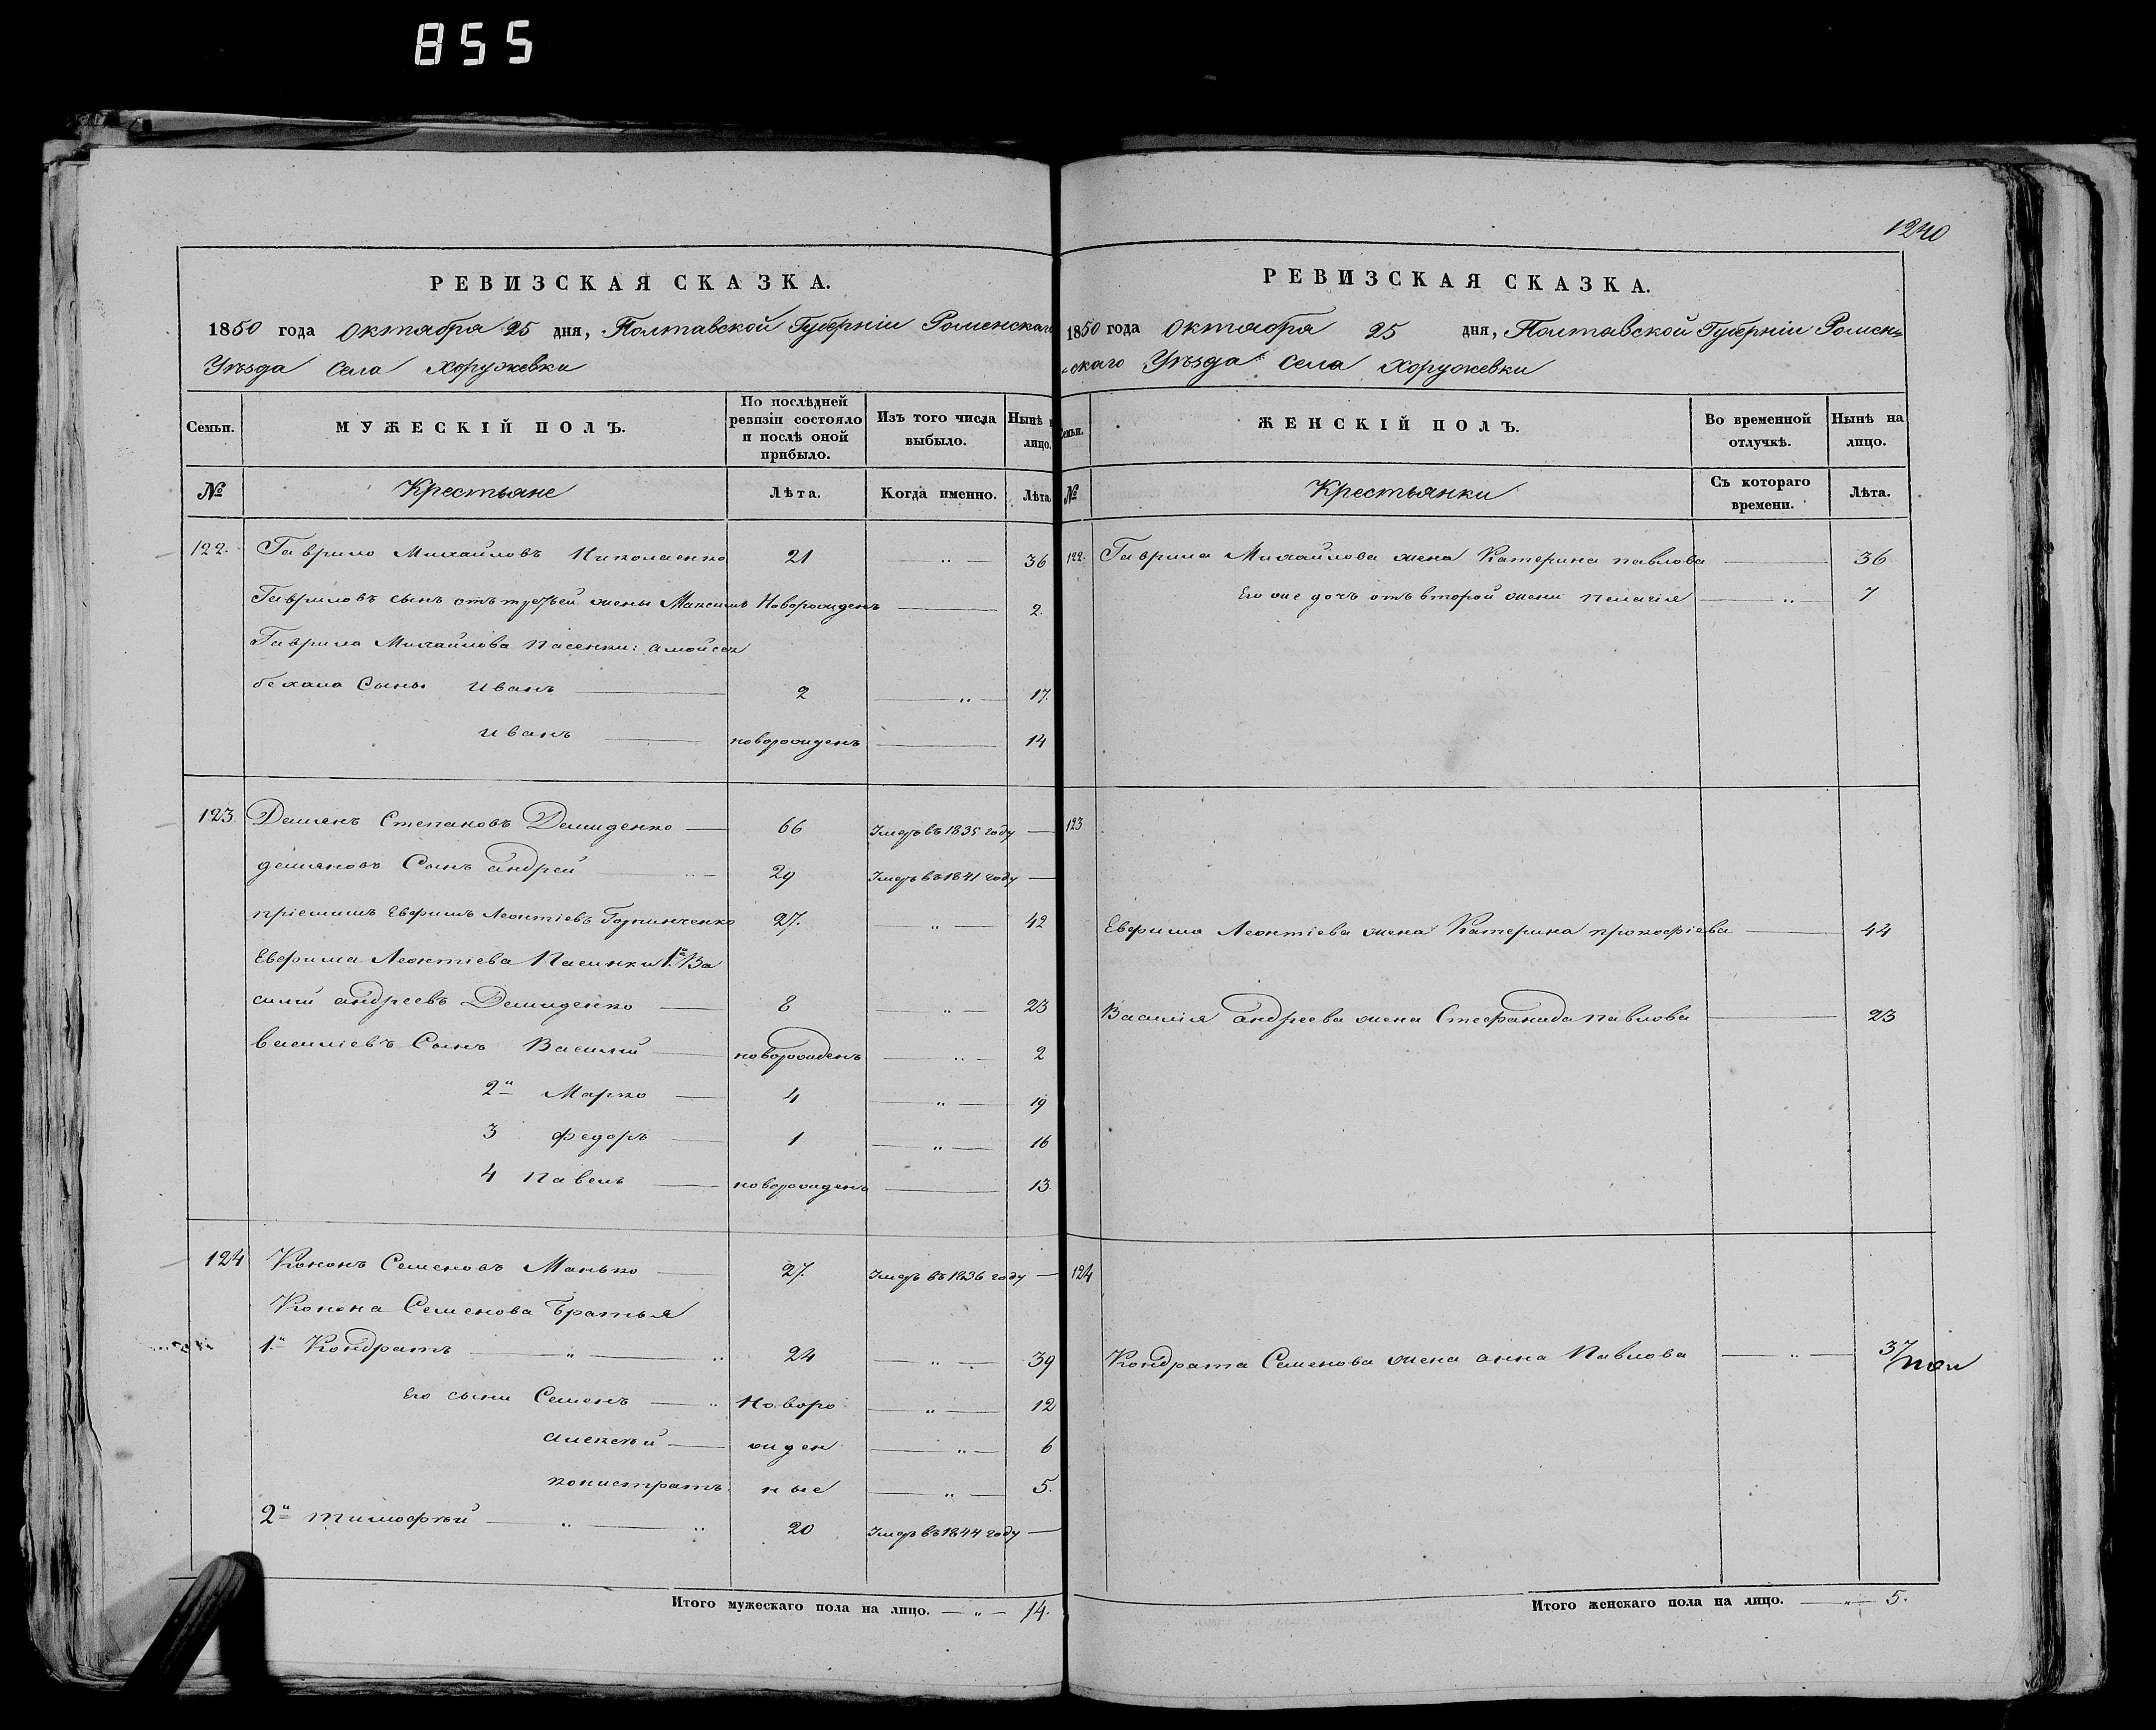 855
РЕВИЗСКАЯ СКАЗКА.
1850 года Октября 25 дня, Полтавской Губерніи Роменскаго
Уѣзда Села Хоружевки
Семьи.
МУЖЕСКІЙ ПОЛЪ.
По послѣдней ревизіи состояло и послѣ оной прибыло.
Изъ того числа выбыло.
Нынѣ н лицо.
№ Крестьяне Лѣта. Когда именно. Лѣта.
122. Гаврило Михайловъ Николаенко 21 " 36
Гавриловъ сынъ отъ третьей жены Максимъ Новорожденъ 2.
Гаврила Михайлова Пасенки:
Сыны Иванъ 2 " 17.
Иванъ новорожденъ 14
123 Демянъ Степановъ Демиденко 66 Умеръ въ 1835 году
демяновъ Сынъ андрей 29 Умеръ въ 1841 году
пріемишъ Евфимъ Леонтіевъ 27. " 42
Евфима Леонтіева Пасинки 1й Ва
силій андреевъ Демиденко 8 " 23
василіевъ Сынъ Василій новорожденъ " 2
2й Марко 4 " 19
3 федоръ 1 " 16
4 Павелъ новорожденъ 13.
124 Кононъ Семеновъ Манько 27. Умеръ въ 1836 году
Конона Семенова Братья
1й Кондратъ " 24 " 39
Его сыни Семенъ Новоро " 12
алексѣй жден " 6
калистратъ ные " 5.
2й тимофѣй " 20 Умеръ въ 1844 году
Итого мужескаго пола на лицо. " 14.
1240
РЕВИЗСКАЯ СКАЗКА.
1850 года Октября 25 дня, Полтавской Губерніи Ромен=
скаго Уѣзда Села Хоружевки
Семьи.
ЖЕНСКІЙ ПОЛЪ.
Во временной отлучкѣ.
Нынѣ на лицо.
№ Крестьянки Съ котораго времени. Лѣта.
122. Гаврила Михайлова жена Катерина павлова 36
Его же дочъ отъ второй жени пелагія " 7
123
Евфима Леонтіева жена Катерина прокофіева 44
Василія андреева жена Стефанида павлова 23
124
Кондрата Семенова жена анна Павлова " 37
Итого женскаго пола на лицо. " 5.